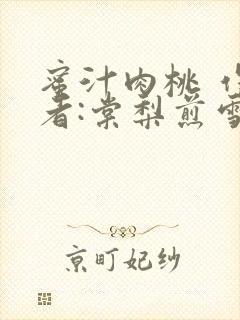 蜜汁肉桃 作
者:棠梨煎雪
京町妃纱